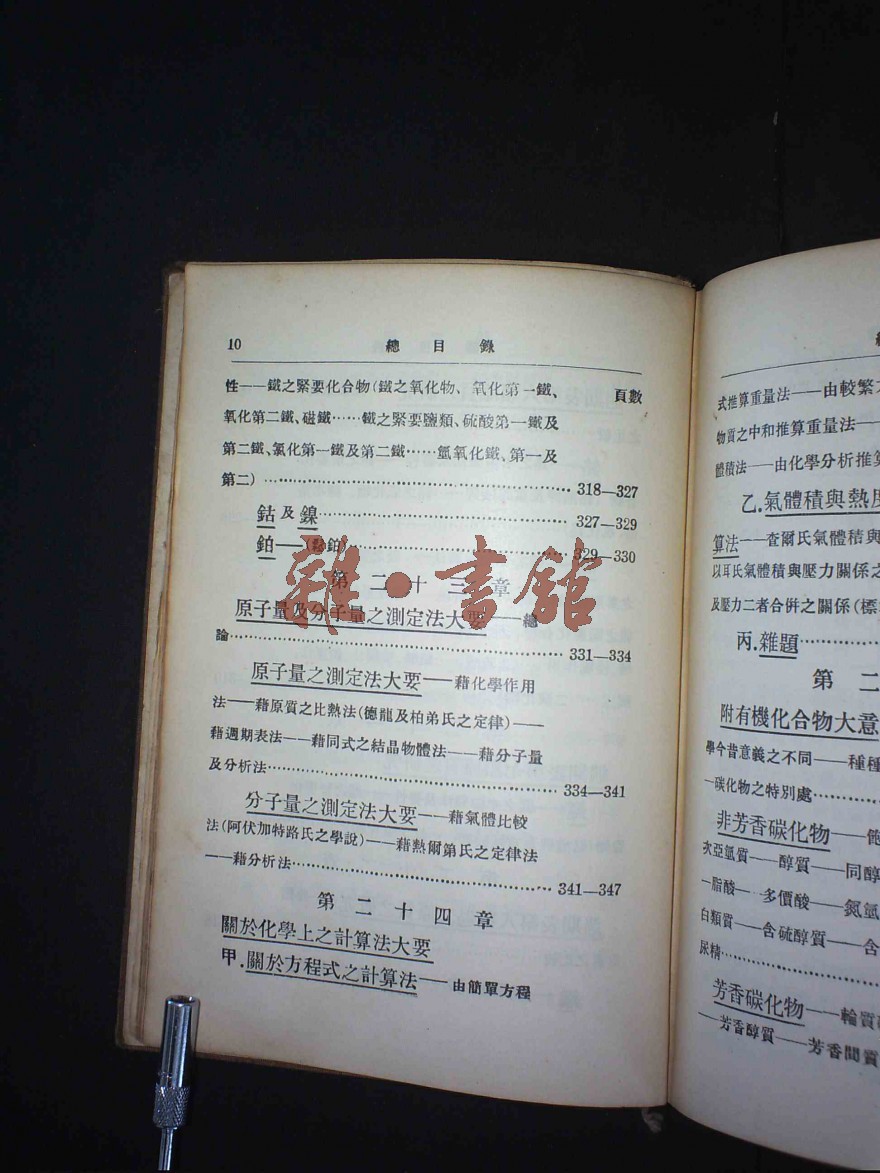 10 總目錄
頁數
性——鐵之緊要化合物(鐵之氧化物、氧化第一鐵、
氧化第二鐵、磁鐵……鐵之緊要鹽類、硫酸第一鐵及
第二鐵、氯化第一鐵及第二鐵……氫氧化鐵、第一及
第二)……318—327
鈷及鎳……327—329
鉑——(鬆鉑)……329—330
第二十三章
原子量及分子量之測定法大要——總
論……331—334
原子量之測定法大要——藉化學作用
法——藉原質之比熱法(德龍及柏弟氏之定律)——
藉週期表法——藉同式之結晶物體法——藉分子量
及分析法……334—341
分子量之測定法大要——藉氣體比較
法(阿伏加特路氏之學說)——藉熱爾第氏之定律法
——藉分析法……341—347
第二十四章
關於化學上之計算法大要
甲.關於方程式之計算法——由簡單方程
雜·書館
式推算重量法——由較繁
物質之中和推算重量法——
體積法——由化學分析推算
乙.氣體積與熱度
算法——查爾氏氣體積與
以耳氏氣體積與壓力關係之
及壓力二者合倂之關係(標
丙.雜題……
第二
附有機化合物大意
學今昔意義之不同——種種
—碳化物之特別處……
非芳香碳化物——飽
次亞氫質——醇質——同醇
—脂酸——多價酸——氮氫
白類質——含硫醇質——含
尿精……
芳香碳化物——輪質
——芳香醇質——芳香間質